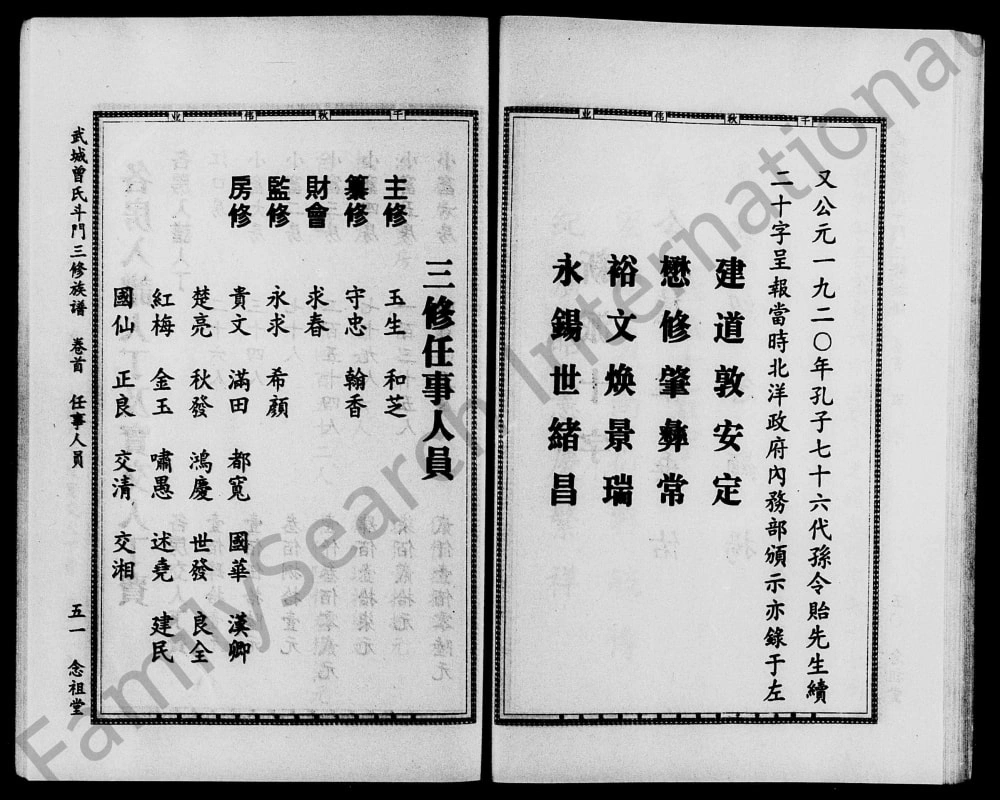 千秋伟业
又公元一九二〇年孔子七十六代孫令貽先生續
二十字呈報當時北洋政府內務部頒示亦錄于左
建道敦安定
懋修肇彝常
裕文煥景瑞
永錫世緒昌
千秋伟业
三修任事人員
主修 玉生 和芝
纂修 守忠 翰香
財會 求春
監修 永求 希顏
房修 貴文 滿田 都寬 國華 漢卿
楚亮 秋發 鴻慶 世發 良全
紅梅 金玉 嘯愚 述堯 建民
國仙 正良 交清 交湘
武城曾氏斗門三修族谱 卷首 任事人員 五一 念祖堂
FamilySearch International